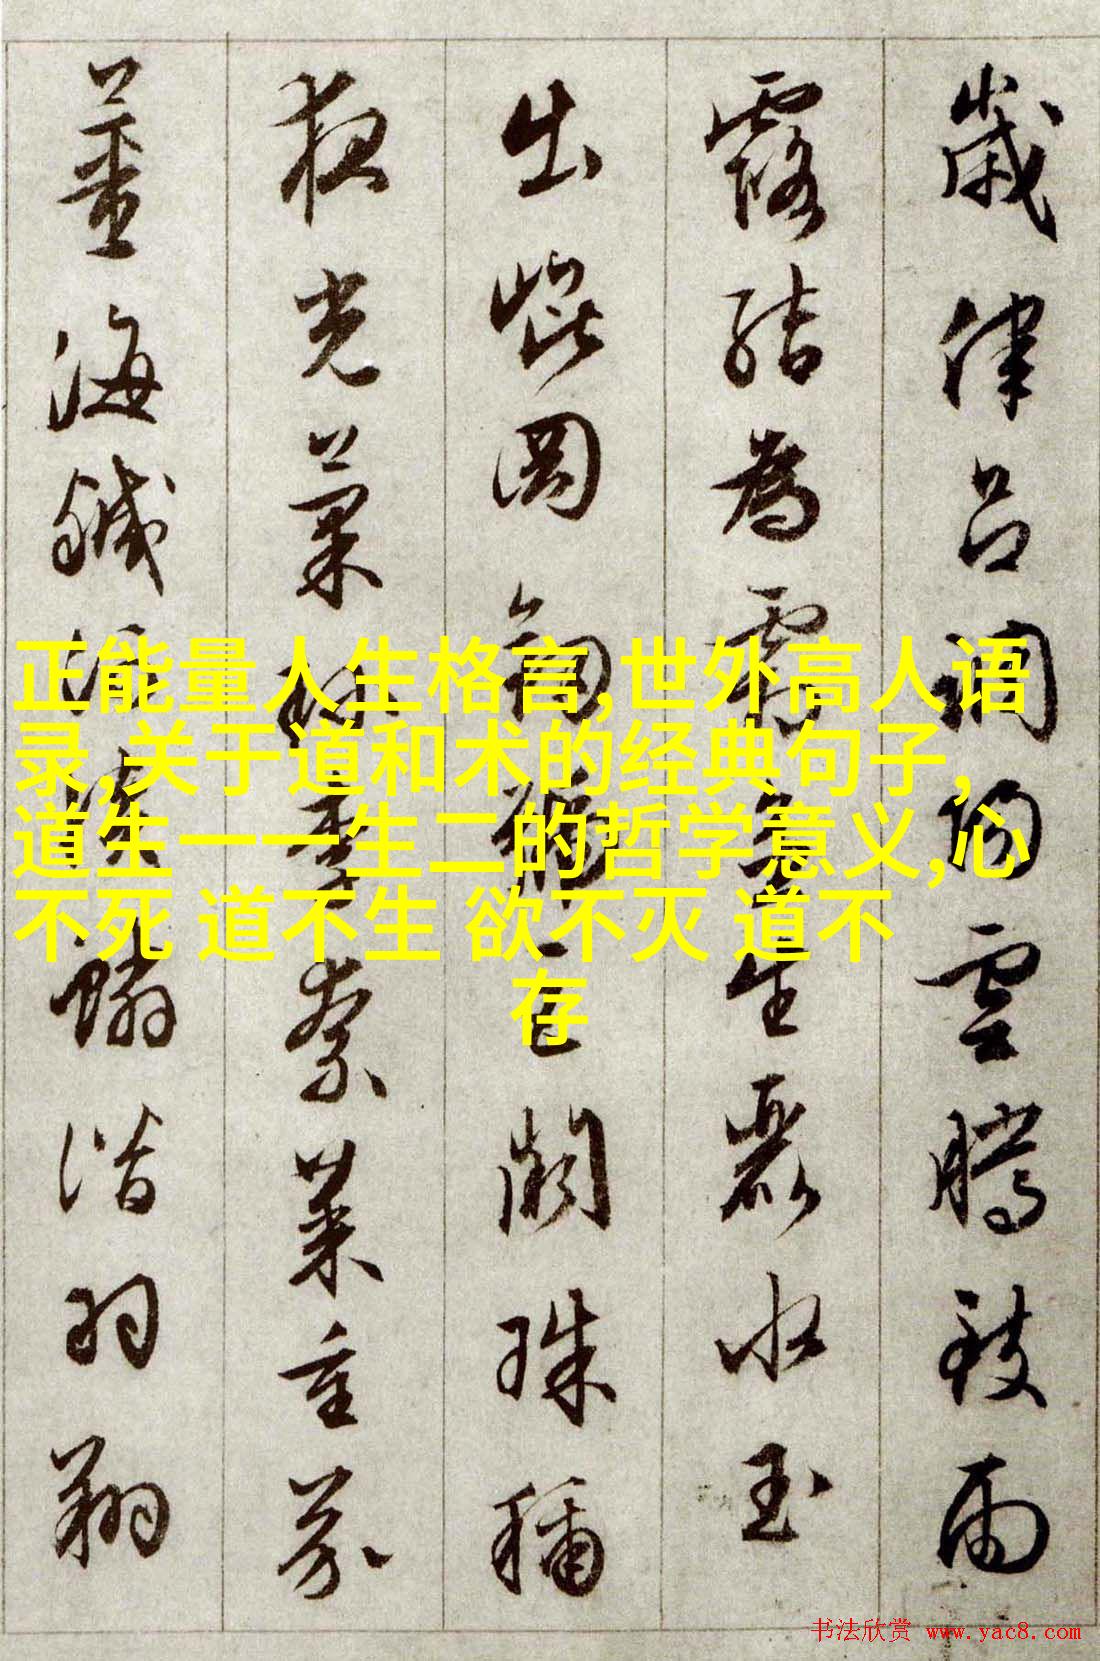 歲律呂調陽雲騰致雨
露結為霜金生麗水玉
出崐岡劒號巨闕珠稱
夜光菓珍李柰菜重芥
薑海鹹河淡鱗潛羽翔
正能量人生格言,世外高人语
录,关于道和术的经典句子,
道生一一生二的哲学意义,心
不死 道不生 欲不灭 道不
存
书法欣赏 www.yac8.com